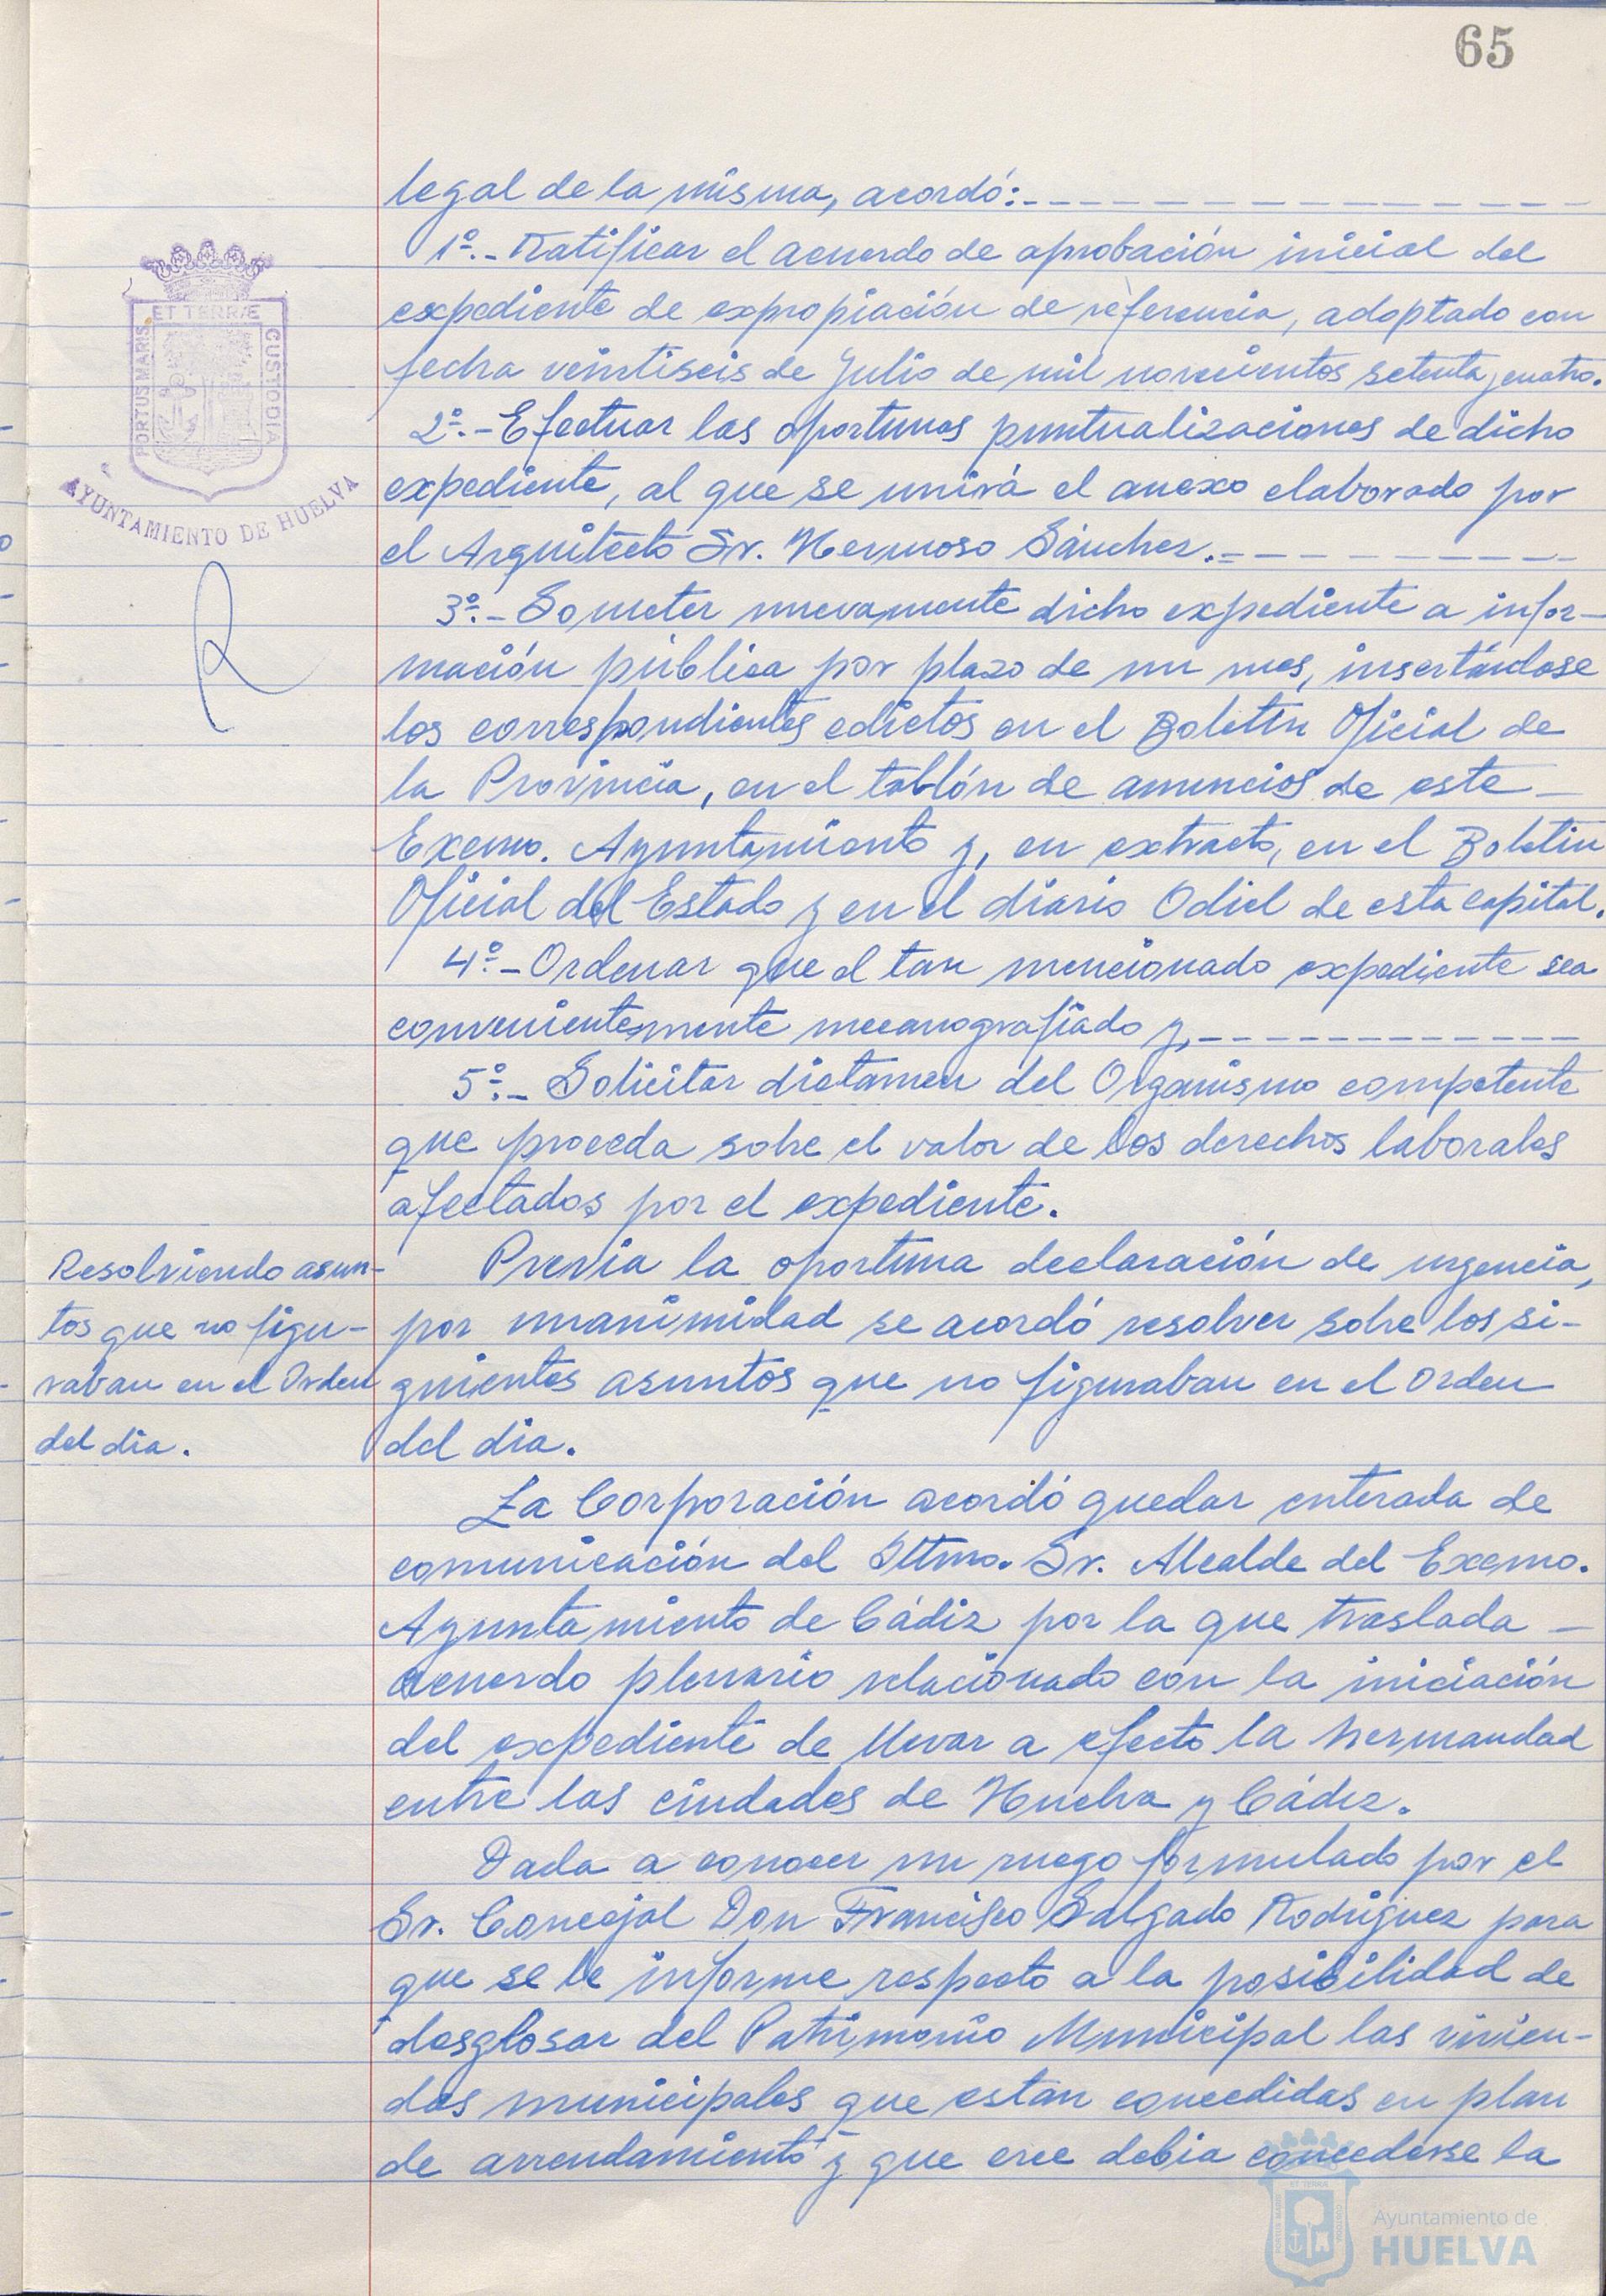 65
legal de la misma, acordó:
1º.- Ratificar el acuerdo de aprobación inicial del
expediente de expropiación de referencia, adoptado con
fecha veintiseis de Julio de mil novecientos setenta y cuatro.
2º.- Efectuar las oportunas puntualizaciones de dicho
expediente, al que se unirá el anexo elaborado por
el Arquitecto Sr. Hermoso Sánchez.
3º.- Someter nuevamente dicho expediente a infor-
mación pública por plazo de un mes, insertándose
los correspondientes edictos en el Boletín Oficial de
la Provincia, en el tablón de anuncios de este
Excmo. Ayuntamiento y, en extracto, en el Boletin
Oficial del Estado y en el diario Odiel de esta capital.
4º.- Ordenar que el tan mencionado expediente sea
convenientemente mecanografiado y,
5º.- Solicitar dictamen del Organismo competente
que proceda sobre el valor de los derechos laborales
afectados por el expediente.
Previa la oportuna declaración de urgencia,
por unanimidad se acordó resolver sobre los si-
guientes asuntos que no figuraban en el Orden
del dia.
La Corporación acordó quedar enterada de
comunicación del Iltmo. Sr. Alcalde del Excmo.
Ayuntamiento de Cádiz por la que traslada
acuerdo plenario relacionado con la iniciación
del expediente de llevar a efecto la hermandad
entre las ciudades de Huelva y Cádiz.
Dada a conocer un ruego formulado por el
Sr. Concejal Don Francisco Salgado Rodriguez para
que se le informe respecto a la posibilidad de
desglosar del Patrimonio Municipal las vivien-
das municipales que estan concedidas en plan
de arrendamiento y que cree debia concederse la
ET TERRÆ
PORTUS MARIS
CUSTODIA
AYUNTAMIENTO DE HUELVA
Resolviendo asun-
tos que no figu-
raban en el Orden
del dia.
Ayuntamiento de
HUELVA